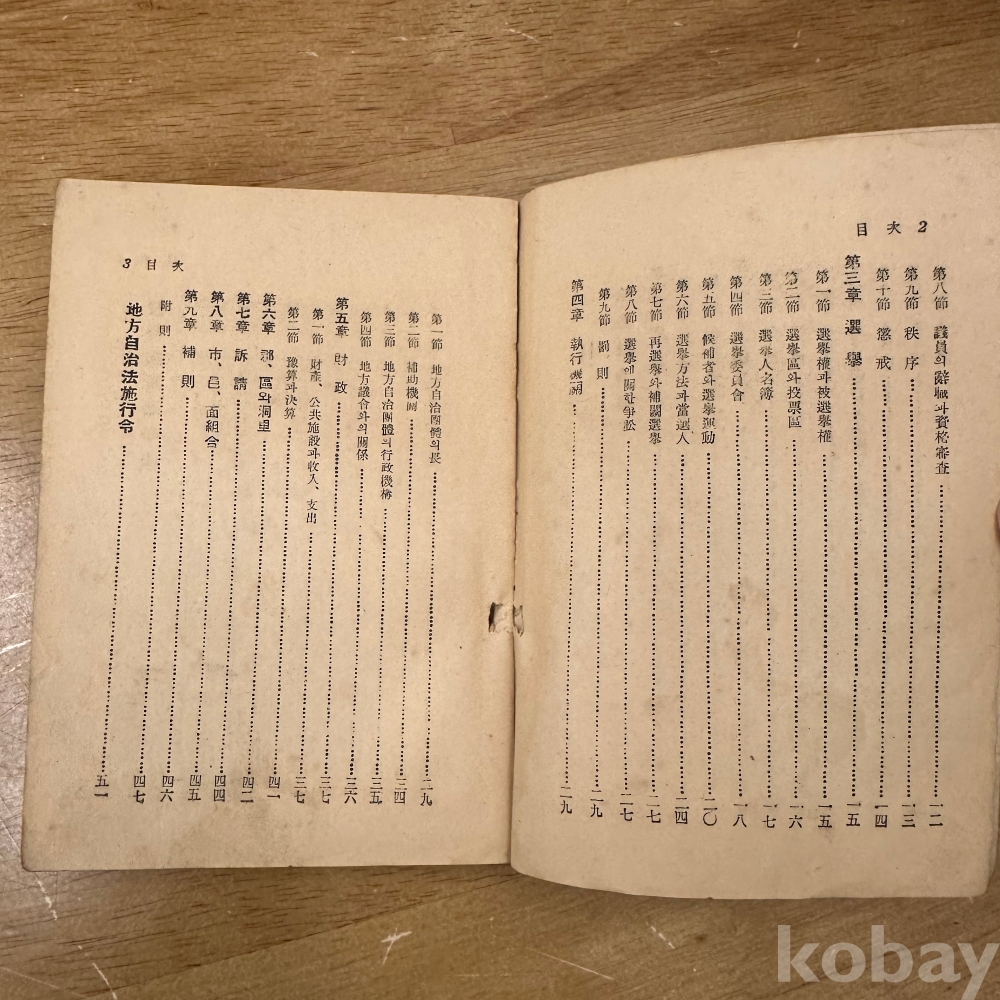 目次 2
第八節 議員의辭職과資格審査 一二
第九節 秩序 一三
第十節 懲戒 一四
第三章 選擧 一五
第一節 選擧權과被選擧權 一五
第二節 選擧區와投票區 一六
第三節 選擧人名簿 一七
第四節 選擧委員會 一八
第五節 候補者와選擧運動 二〇
第六節 選擧方法과當選人 二四
第七節 再選擧와補闕選擧 二七
第八節 選擧에關한爭訟 二七
第九節 罰則 二九
第四章 執行機關 二九
3 目次
第一節 地方自治團體의長 二九
第二節 補助機關 三四
第三節 地方自治團體의行政機構 三五
第四節 地方議會와의關係 三六
第五章 財政 三七
第一節 財產、公共施設과收入、支出 三七
第二節 豫算과決算 四一
第六章 郡、區와洞里 四二
第七章 訴請 四四
第八章 市、邑、面組合 四五
第九章 補則 四六
附則 四七
地方自治法施行令 五一
kobay